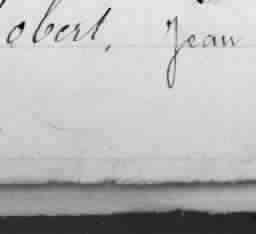 obert, Jean